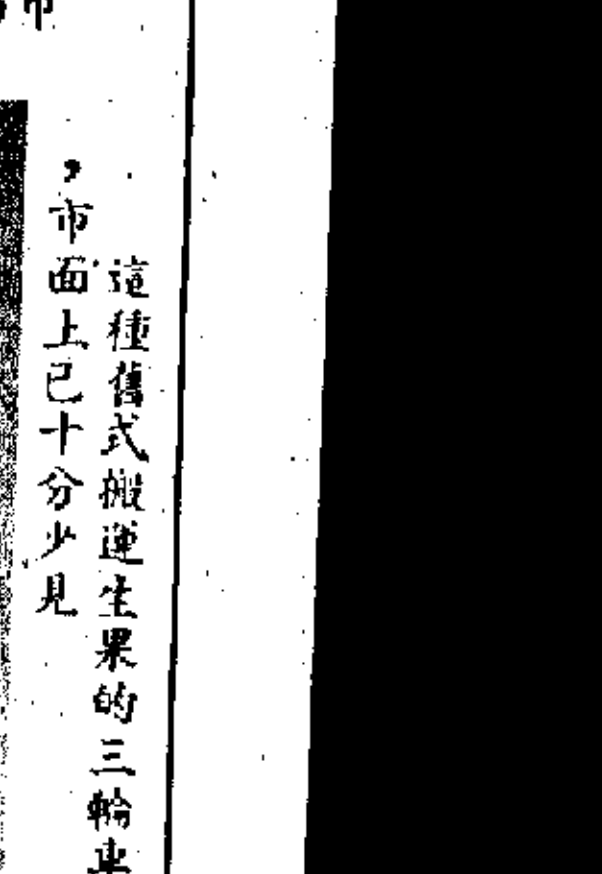 這種舊式搬運生果的三輪車
，市面上已十分少見